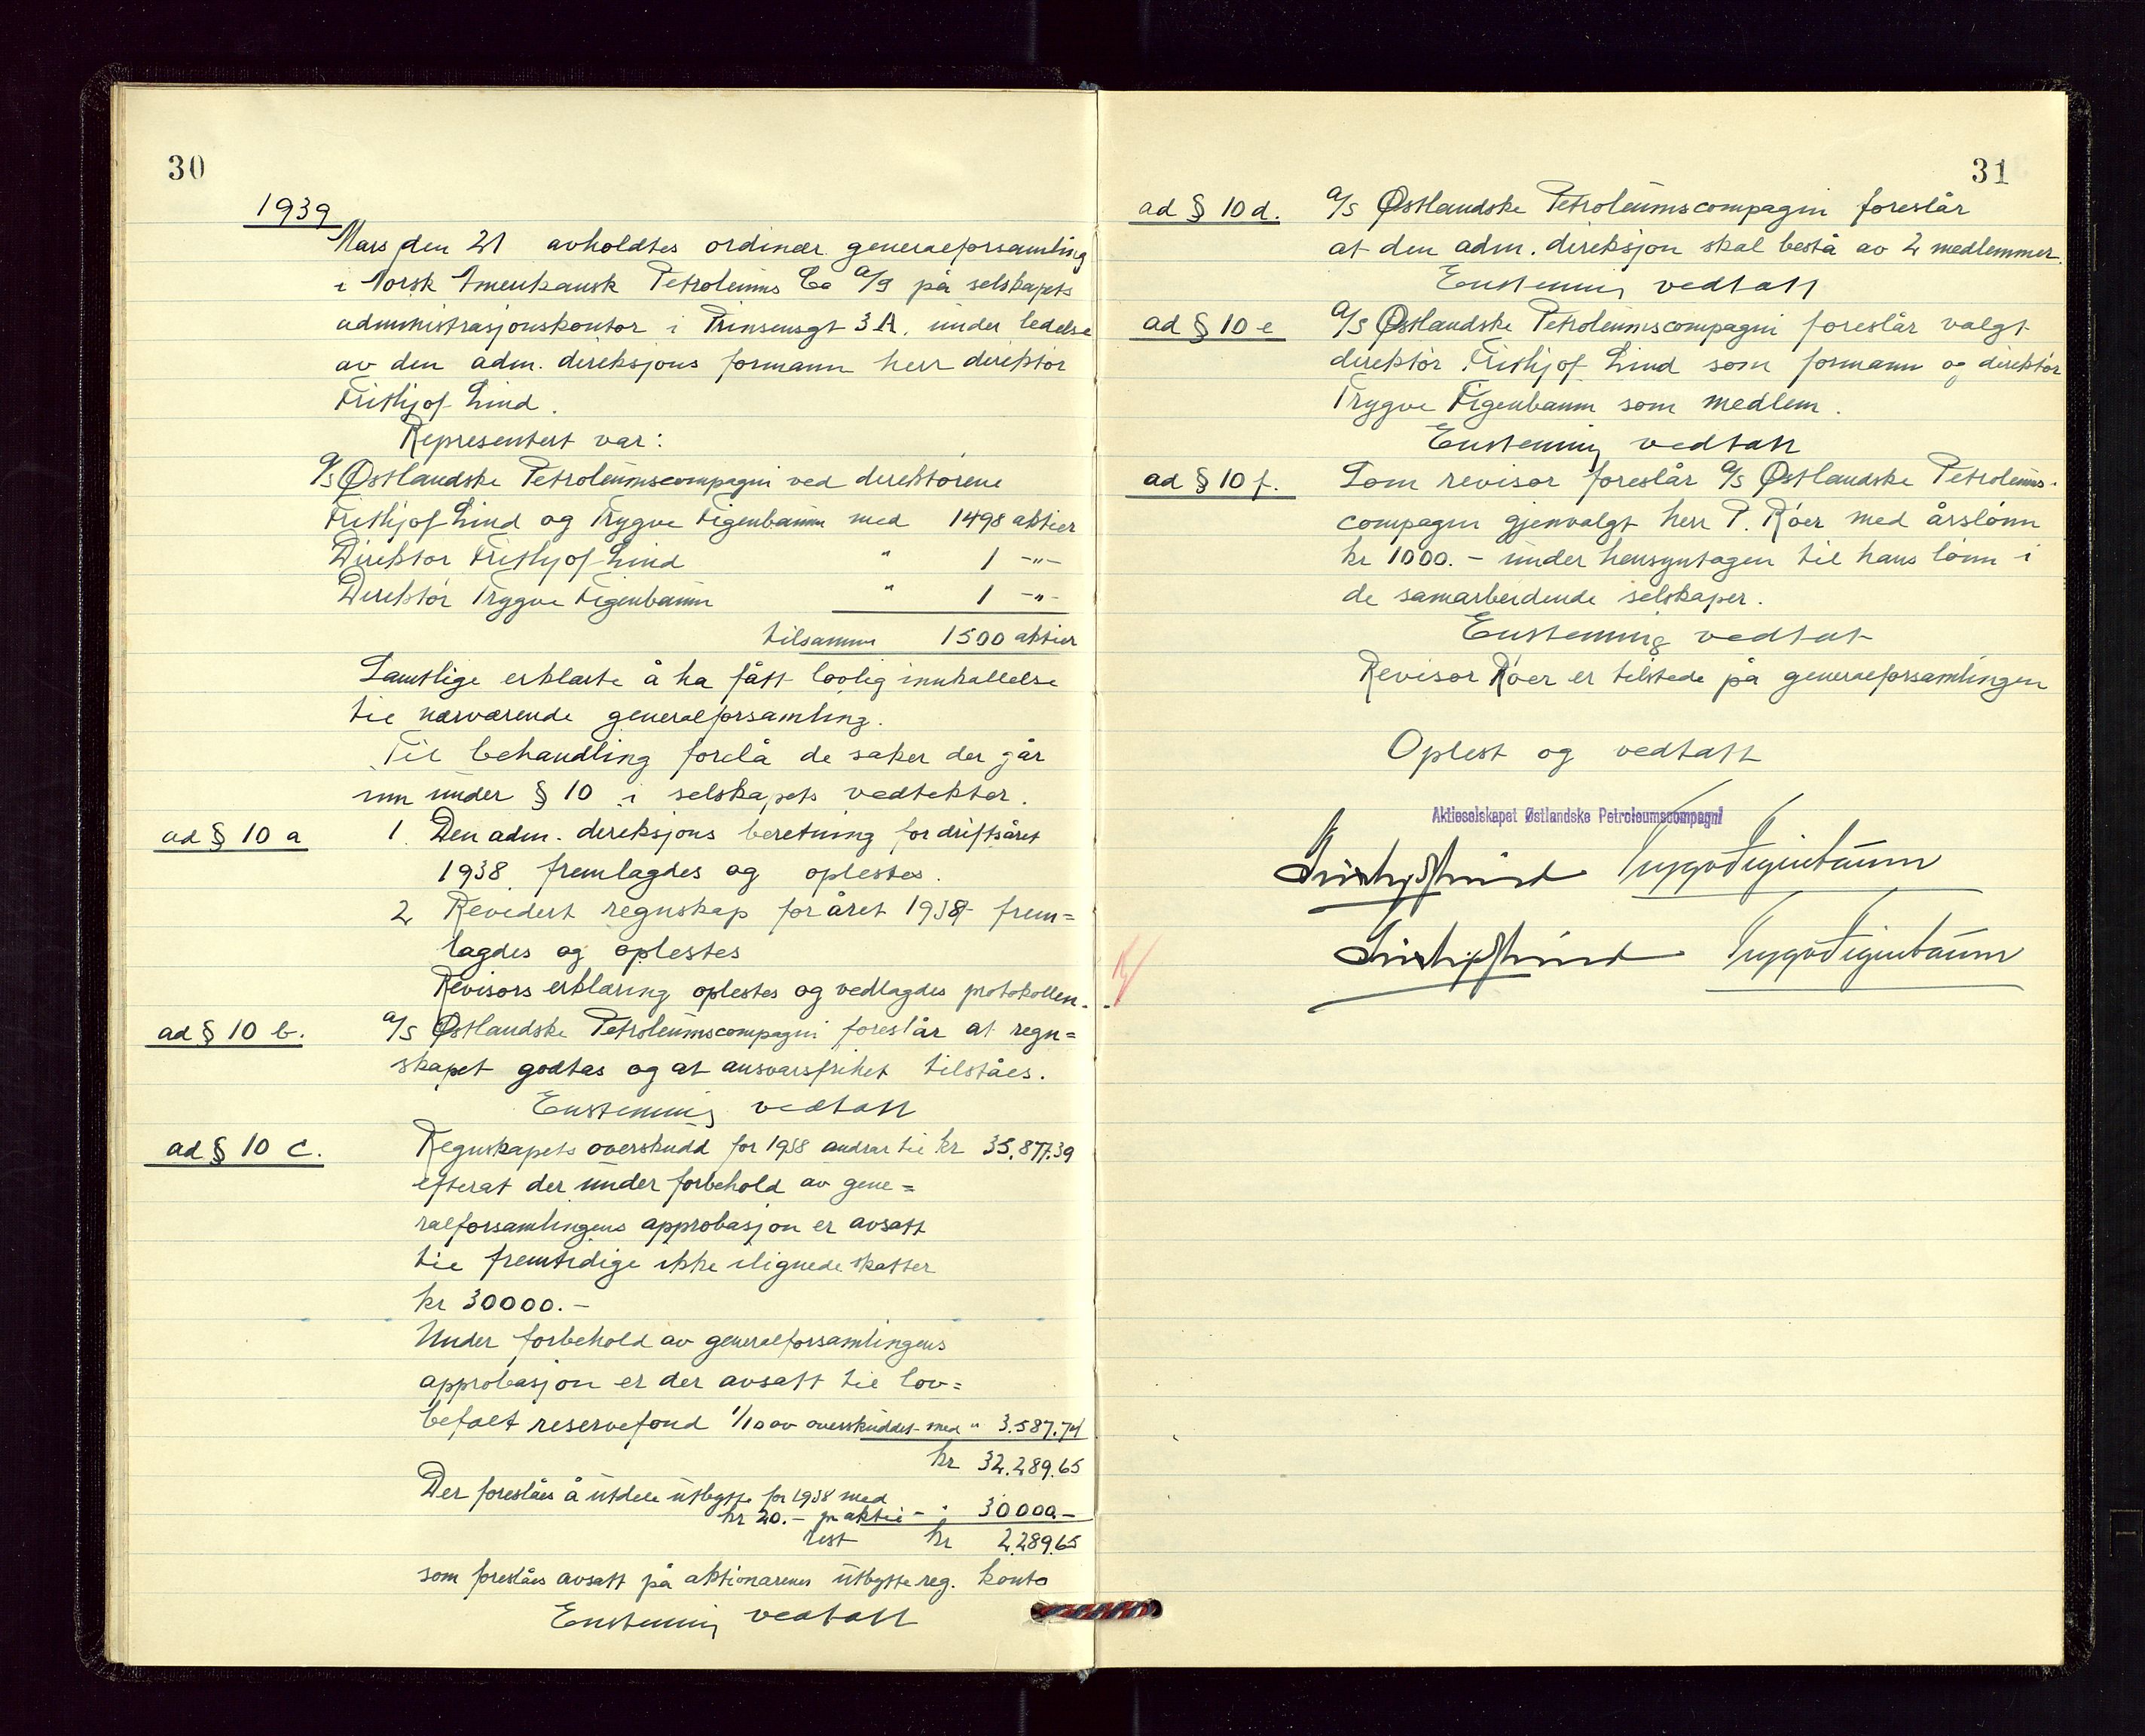 30
1939
Mars den 21 avholdtes ordinær generalforsamling
i Norsk Amerikansk Petroleums Co A/S på selskapets
administrasjonskontor i Prinsensgt 3 A. under ledelse
av den adm. direksjons formann herr direktør
Frithjof Lind.
Representert var:
A/S Østlandske Petroleumscompagni ved direktørene
Frithjof Lind og Trygve Figenbaum med 1498 aktier
Direktør Frithjof Lind " 1 -"-
Direktør Trygve Figenbaum " 1 -"-
tilsammen 1500 aktier
Samtlige erklærte å ha fått lovlig innkallelse
til nærværende generalforsamling.
Til behandling forelå de saker der går
inn under § 10 i selskapets vedtekter.
ad § 10 a 1. Den adm. direksjons beretning for driftsåret
1938 fremlagdes og oplestes.
2 Revidert regnskap for året 1938 frem=
lagdes og oplestes
Revisors erklæring oplestes og vedlagdes protokollen.
ad § 10 b. A/S Østlandske Petroleumscompagni foreslår at regn=
skapet godtas og at ansvarsfrihet tilståes.
Enstemmig vedtatt
ad § 10 c. Regnskapets overskudd for 1938 andrar til kr 35.877.39
efterat der under forbehold av gene=
ralforsamlingens approbasjon er avsatt
til fremtidige ikke ilignede skatter
kr 30000.-
Under forbehold av generalforsamlingens
approbasjon er der avsatt til lov=
befalt reservefond 1/10 av overskuddet med " 3.587.74
kr 32.289.65
Der foreslåes å utdele utbytte for 1938 med
kr 20.- pr aktie - " 30000.-
rest kr 2.289.65
som foreslåes avsatt på aktionærenes utbytte reg. konto
Enstemmig vedtatt
31
ad § 10 d. A/S Østlandske Petroleumscompagni foreslår
at den adm. direksjon skal bestå av 2 medlemmer.
Enstemmig vedtatt
ad § 10 e A/S Østlandske Petroleumscompagni foreslår valgt
direktør Frithjof Lind som formann og direktør
Trygve Figenbaum som medlem.
Enstemmig vedtatt
ad § 10 f. Som revisor foreslår A/S Østlandske Petroleums-
compagni gjenvalgt herr P. Røer med årslønn
kr 1000.- under hensyntagen til hans lønn i
de samarbeidende selskaper.
Enstemmig vedtatt
Revisor Røer er tilstede på generalforsamlingen
Oplest og vedtatt
Aktieselskapet Østlandske Petroleumscompagni
Frithjof Lind Trygve Figenbaum
Frithjof Lind Trygve Figenbaum